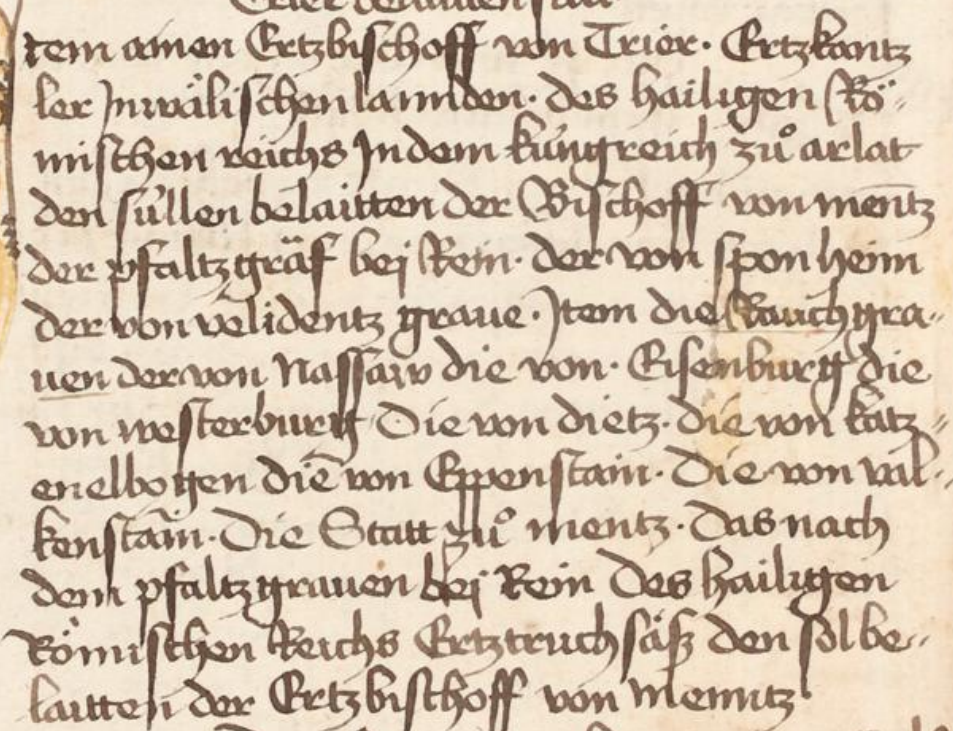 tem ainen Ertzbischoff von Trier. Ertzkantz
ler Jn wälischen lannden. des hailigen Rö-
mischen reichs Jn dem kungreich zů arlat
den sullen belaitten der Bischoff von mentz
der pfaltzgräf bej Rein. der von sponheim
der von velidentz graue. Jtem die Rauchgra-
uen der von Nassaw die von. Eisenburg die
von westerburg Die von dietz. die von katz-
enelbogen die von Eppenstain. Die von val-
kenstain. Die Statt zů mentz. Das nach
dem pfaltzgrauen bej Rein Des hailigen
Römischen Reichs Ertztruchsäß den sol be-
laitten der Ertzbischoff von menntz